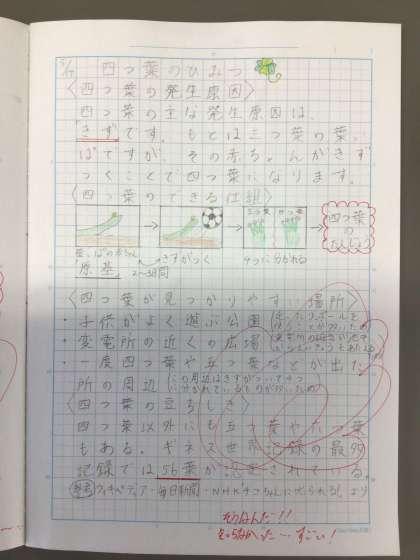 5/17 四つ葉のひみつ
〈四つ葉の発生原因〉
四つ葉の主な発生原因は、
"きず"です。もとは三つ葉の葉っ
ぱですが、その赤ちゃんがきず
つくことで四つ葉になります。
〈四つ葉のできる仕組〉
三つ葉 四つ葉
四つ葉
の
たんじょう
葉っぱの赤ちゃん きずがつく 4つに分かれる
原基 2〜3週間
〈四つ葉が見つかりやすい場所〉
・子供がよく遊ぶ公園
・変電所の近くの広場
・一度四つ葉や五つ葉などが出た
所の周辺
〈四つ葉の立ちしき〉
四つ葉以外にも五つ葉や六つ葉
もある。ギネス世界記録の最多
記録では56葉が認定されている。
参考 ウィキペディア・毎日新聞・NHK「チコちゃんに叱られる!」より
そうなんだ!!
すごい!